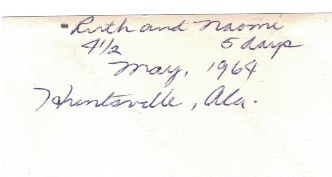 Ruth and Naomi
4 1/2 5 days
May, 1964
Huntsville, Ala.